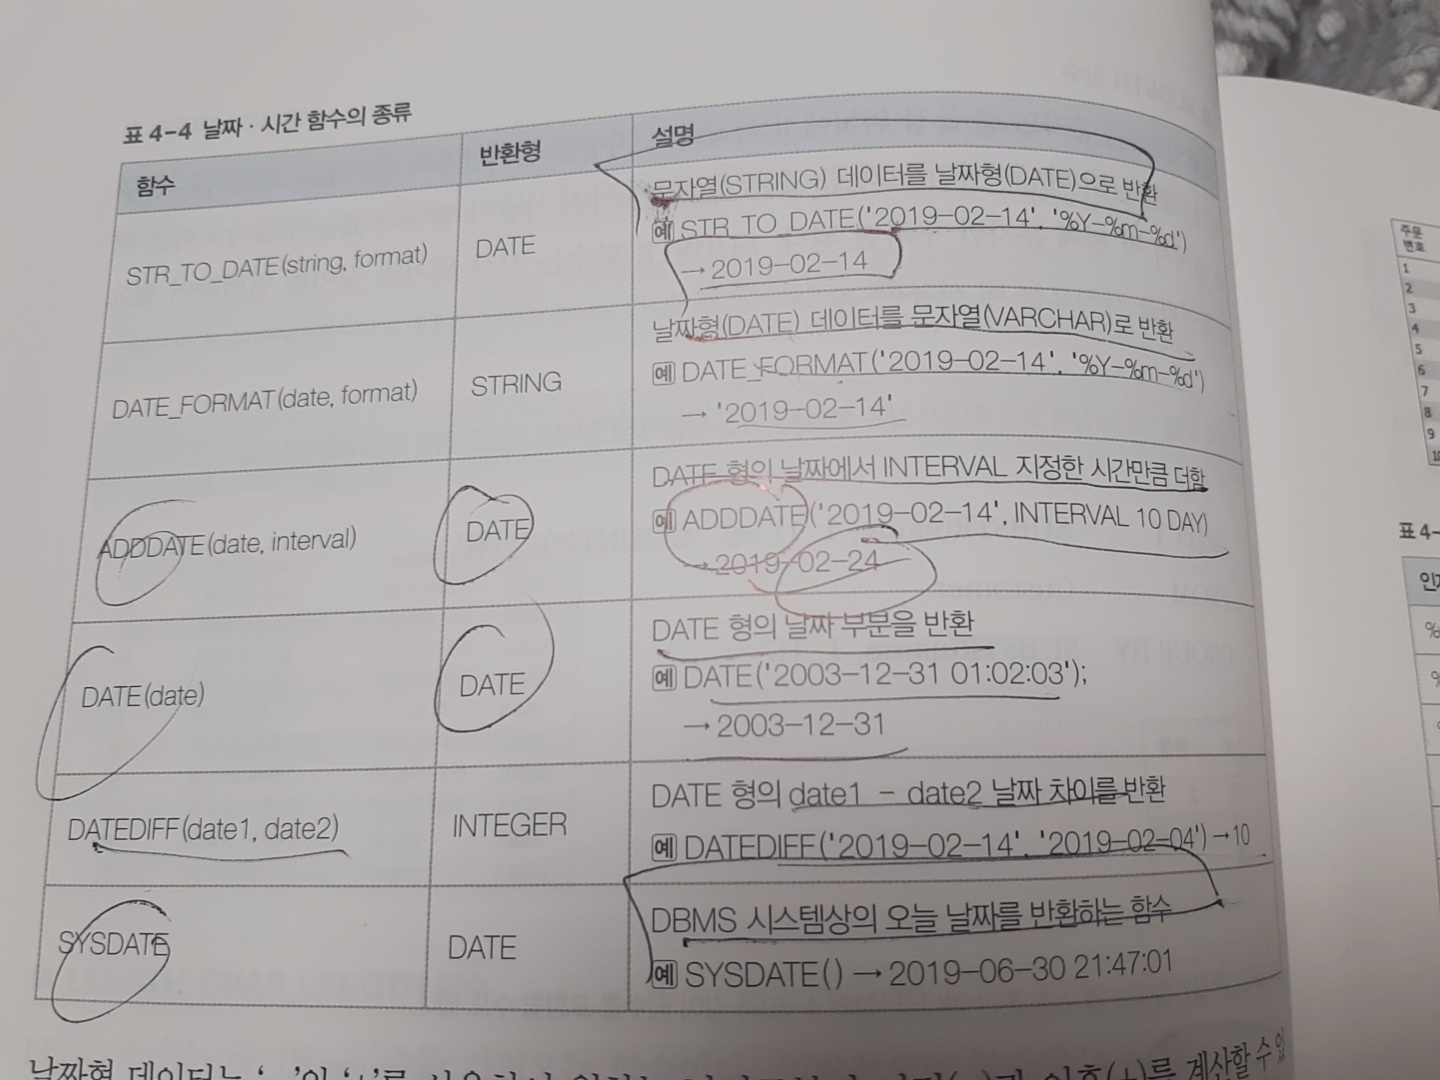 표 4-4 날짜 · 시간 함수의 종류
함수 반환형 설명
STR_TO_DATE(string, format) DATE 문자열(STRING) 데이터를 날짜형(DATE)으로 반환
예 STR_TO_DATE('2019-02-14', '%Y-%m-%d')
→ 2019-02-14
DATE_FORMAT(date, format) STRING 날짜형(DATE) 데이터를 문자열(VARCHAR)로 반환
예 DATE_FORMAT('2019-02-14', '%Y-%m-%d')
→ '2019-02-14'
ADDDATE(date, interval) DATE DATE 형의 날짜에서 INTERVAL 지정한 시간만큼 더함
예 ADDDATE('2019-02-14', INTERVAL 10 DAY)
→ 2019-02-24
DATE(date) DATE DATE 형의 날짜 부분을 반환
예 DATE('2003-12-31 01:02:03');
→ 2003-12-31
DATEDIFF(date1, date2) INTEGER DATE 형의 date1 - date2 날짜 차이를 반환
예 DATEDIFF('2019-02-14', '2019-02-04') → 10
SYSDATE DATE DBMS 시스템상의 오늘 날짜를 반환하는 함수
예 SYSDATE() → 2019-06-30 21:47:01
날짜형 데이터는 '-'와 '+'를
계산할 수 있
주문
번호
1
2
3
4
5
6
7
8
9
10
표 4-